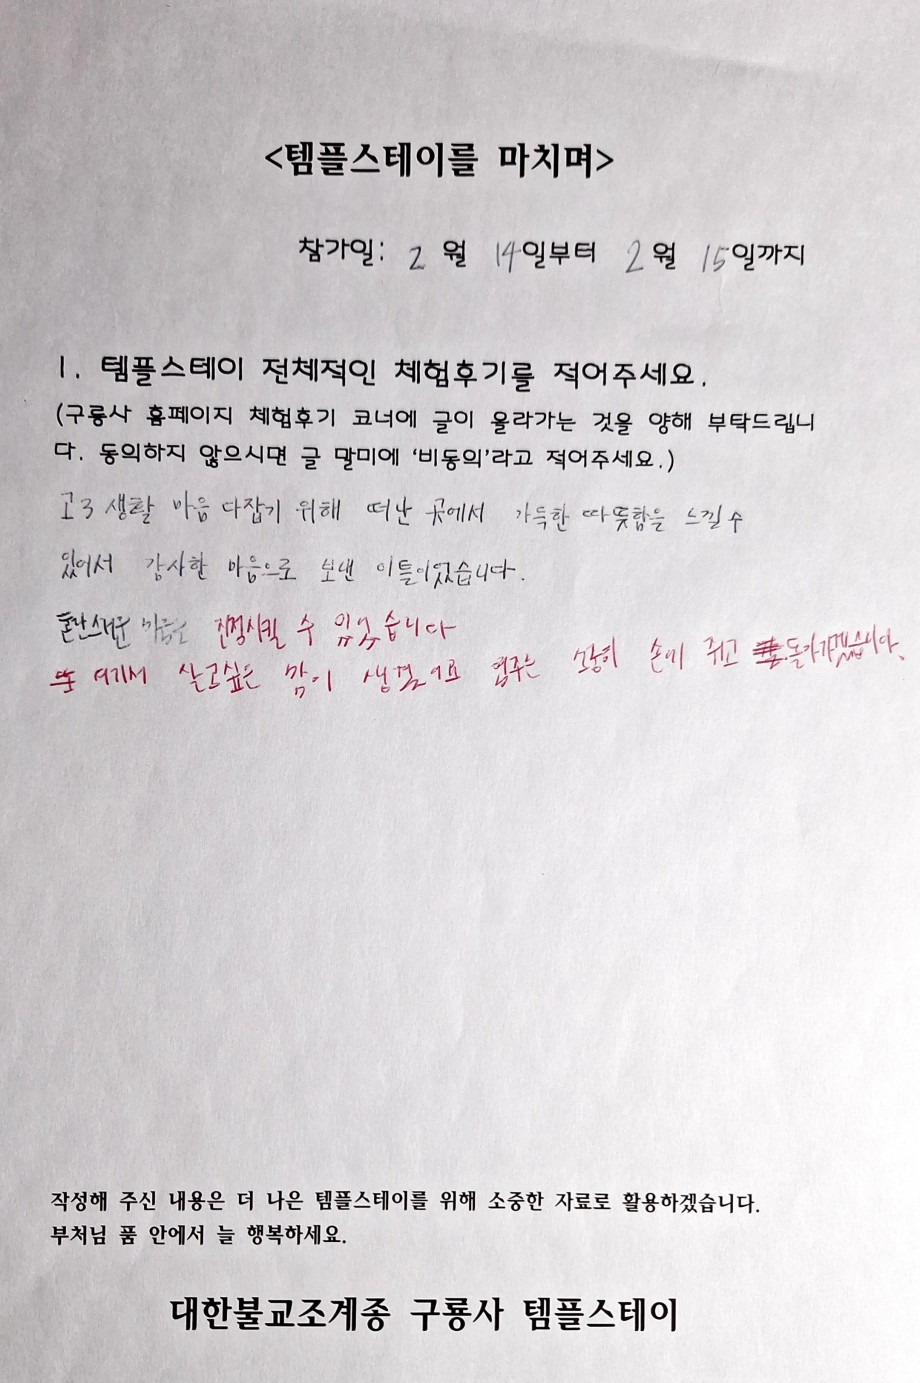 <템플스테이를 마치며>
참가일: 2 월 14일부터 2 월 15일까지
1. 템플스테이 전체적인 체험후기를 적어주세요.
(구룡사 홈페이지 체험후기 코너에 글이 올라가는 것을 양해 부탁드립니
다. 동의하지 않으시면 글 말미에 '비동의'라고 적어주세요.)
고3 생활 마음 다잡기 위해 떠난 곳에서 가득한 따뜻함을 느낄 수
있어서 감사한 마음으로 보낸 이틀이었습니다.
혼란스러운 마음을 진정시킬 수 있었습니다
여기서 살고싶은 맘이 생겼어요 염주는 소중히 손에 쥐고 돌아가겠습니다.
작성해 주신 내용은 더 나은 템플스테이를 위해 소중한 자료로 활용하겠습니다.
부처님 품 안에서 늘 행복하세요.
대한불교조계종 구룡사 템플스테이